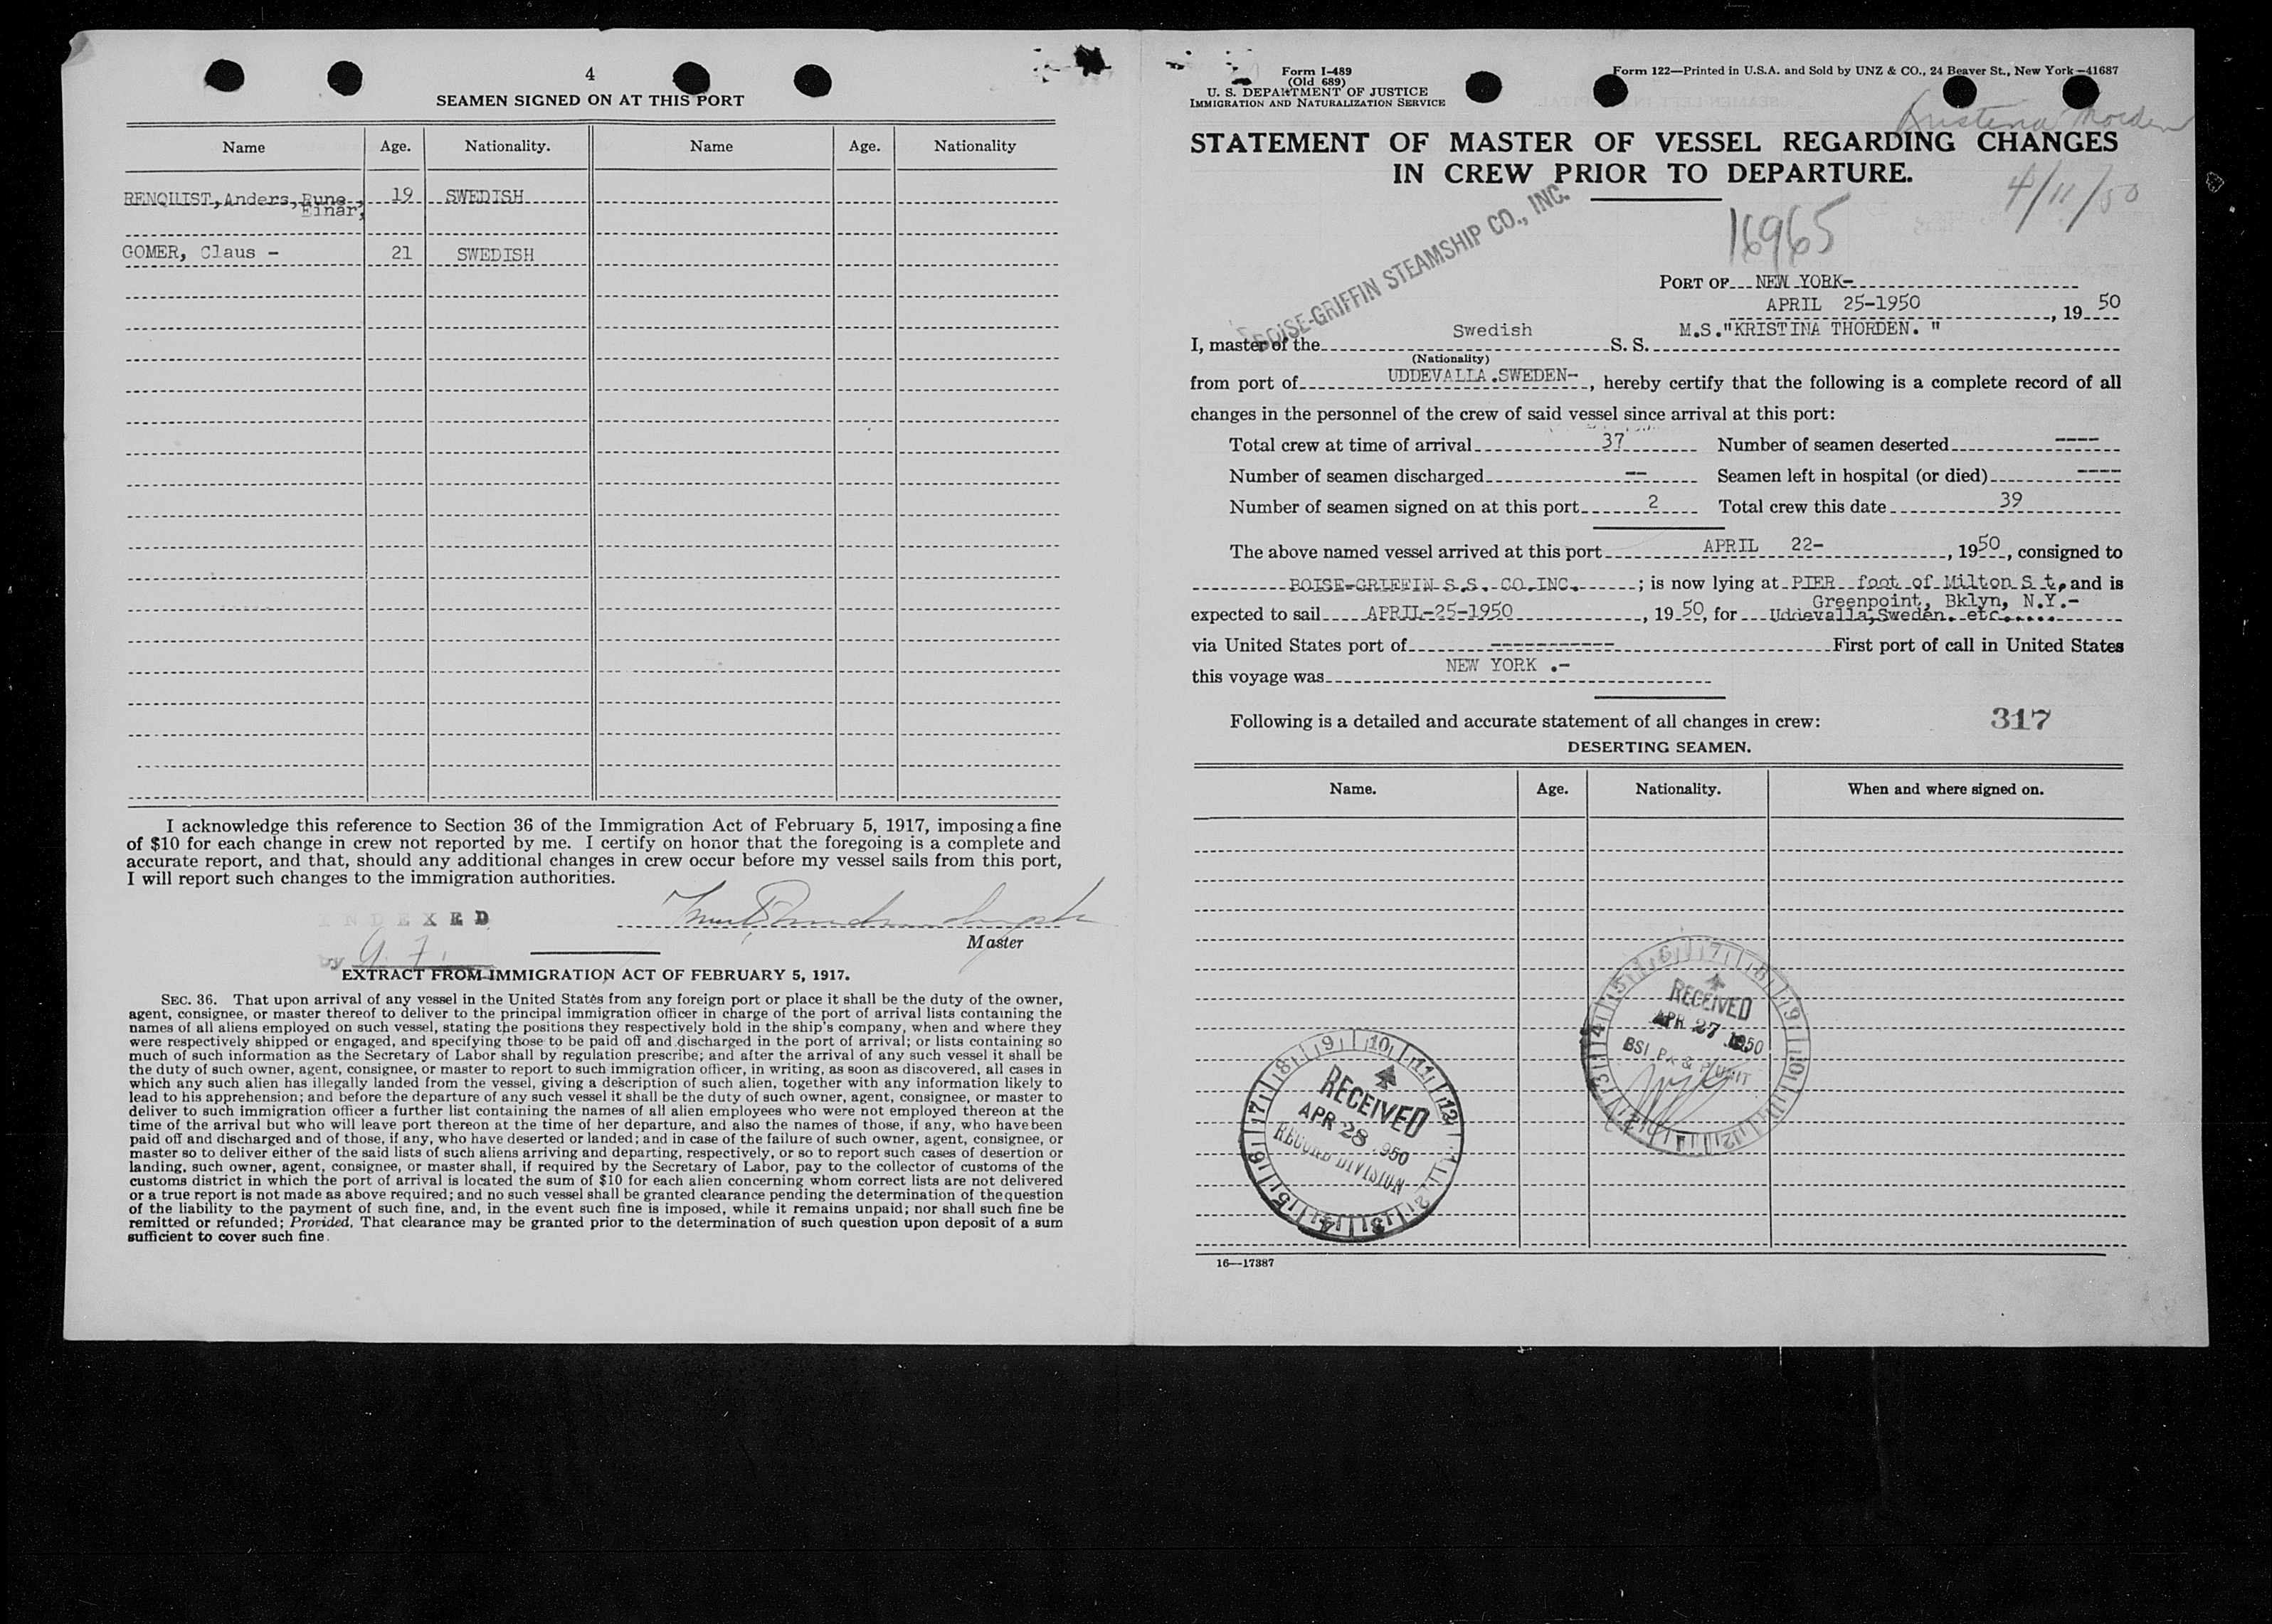 4
SEAMEN SIGNED ON AT THIS PORT
Name Age. Nationality. Name Age. Nationality
RENQUIST, Anders, Rune, 19 SWEDISH
Einar,
GOMER, Claus - 21 SWEDISH
I acknowledge this reference to Section 36 of the Immigration Act of February 5, 1917, imposing a fine
of $10 for each change in crew not reported by me. I certify on honor that the foregoing is a complete and
accurate report, and that, should any additional changes in crew occur before my vessel sails from this port,
I will report such changes to the immigration authorities.
INDEXED
by
Master
EXTRACT FROM IMMIGRATION ACT OF FEBRUARY 5, 1917.
SEC. 36. That upon arrival of any vessel in the United States from any foreign port or place it shall be the duty of the owner,
agent, consignee, or master thereof to deliver to the principal immigration officer in charge of the port of arrival lists containing the
names of all aliens employed on such vessel, stating the positions they respectively hold in the ship's company, when and where they
were respectively shipped or engaged, and specifying those to be paid off and discharged in the port of arrival; or lists containing so
much of such information as the Secretary of Labor shall by regulation prescribe; and after the arrival of any such vessel it shall be
the duty of such owner, agent, consignee, or master to report to such immigration officer, in writing, as soon as discovered, all cases in
which any such alien has illegally landed from the vessel, giving a description of such alien, together with any information likely to
lead to his apprehension; and before the departure of any such vessel it shall be the duty of such owner, agent, consignee, or master to
deliver to such immigration officer a further list containing the names of all alien employees who were not employed thereon at the
time of the arrival but who will leave port thereon at the time of her departure, and also the names of those, if any, who have been
paid off and discharged and of those, if any, who have deserted or landed; and in case of the failure of such owner, agent, consignee, or
master so to deliver either of the said lists of such aliens arriving and departing, respectively, or so to report such cases of desertion or
landing, such owner, agent, consignee, or master shall, if required by the Secretary of Labor, pay to the collector of customs of the
customs district in which the port of arrival is located the sum of $10 for each alien concerning whom correct lists are not delivered
or a true report is not made as above required; and no such vessel shall be granted clearance pending the determination of the question
of the liability to the payment of such fine, and, in the event such fine is imposed, while it remains unpaid; nor shall such fine be
remitted or refunded; Provided, That clearance may be granted prior to the determination of such question upon deposit of a sum
sufficient to cover such fine.
Form I-489
(Old 689)
U. S. DEPARTMENT OF JUSTICE
IMMIGRATION AND NATURALIZATION SERVICE
Form 122—Printed in U.S.A. and Sold by UNZ & CO., 24 Beaver St., New York—41687
Kristina Thorden
STATEMENT OF MASTER OF VESSEL REGARDING CHANGES
IN CREW PRIOR TO DEPARTURE.
4/11/50
16965
BOISE-GRIFFIN STEAMSHIP CO., INC.
PORT OF NEW YORK-
APRIL 25-1950, 19 50
I, master of the Swedish S. S. M.S."KRISTINA THORDEN. "
(Nationality)
from port of UDDEVALLA.SWEDEN-, hereby certify that the following is a complete record of all
changes in the personnel of the crew of said vessel since arrival at this port:
Total crew at time of arrival 37 Number of seamen deserted ----
Number of seamen discharged -- Seamen left in hospital (or died) ----
Number of seamen signed on at this port 2 Total crew this date 39
The above named vessel arrived at this port APRIL 22-, 1950, consigned to
BOISE-GRIFFIN S.S. CO.INC.; is now lying at PIER foot of Milton S t, and is
Greenpoint, Bklyn, N.Y.-
expected to sail APRIL-25-1950, 19 50, for Uddevalla,Sweden. etc.....
via United States port of ----------- First port of call in United States
this voyage was NEW YORK .-
Following is a detailed and accurate statement of all changes in crew: 317
DESERTING SEAMEN.
Name. Age. Nationality. When and where signed on.
RECEIVED
APR 27 1950
BSI Px & P UNIT
RECEIVED
APR 28 1950
RECORD DIVISION
16—17387